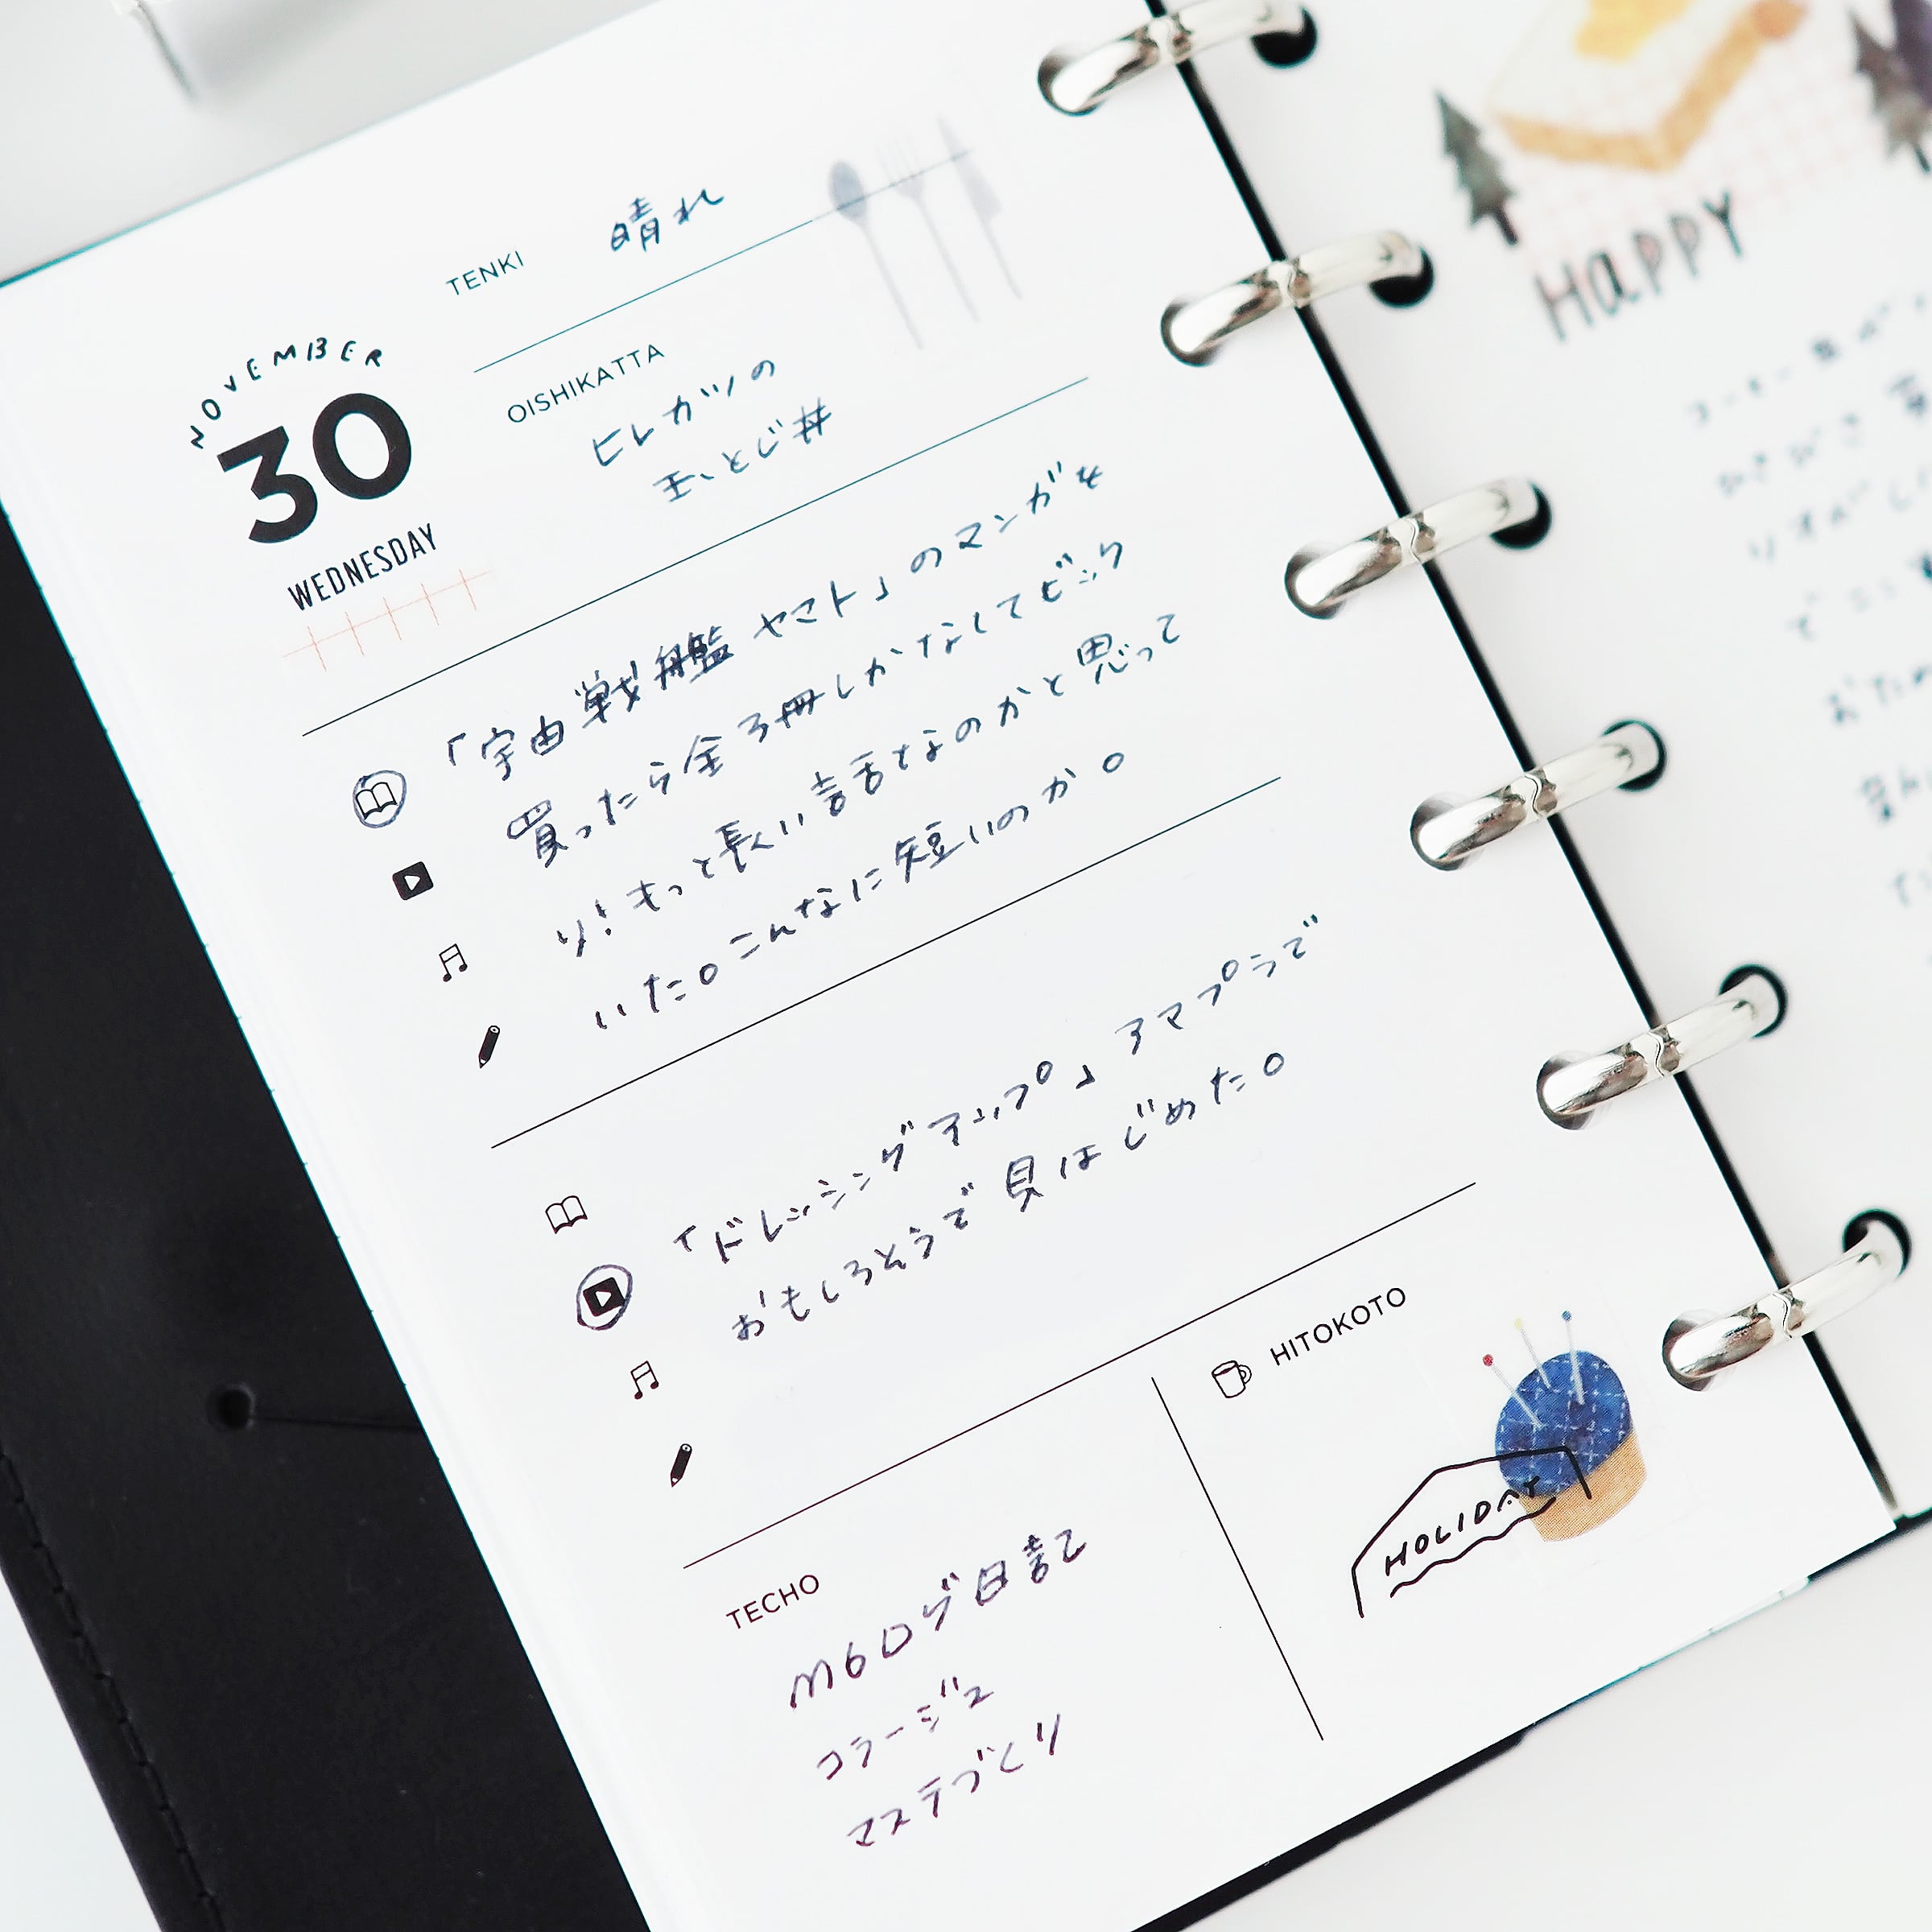 TENKI 晴れ
NOVEMBER
30
WEDNESDAY
OISHIKATTA
ヒレカツの
玉子とじ丼
「宇宙戦艦ヤマト」のマンガを
買ったら全3冊しかなくてビック
リ!もっと長い話なのかと思って
いた。こんなに短いのか。
「ドレッシングアップ」アマプラで
おもしろそうで見はじめた。
TECHO
M6ログ日記
コラージュ
マステづくり
HITOKOTO
HOLIDAY
HAPPY